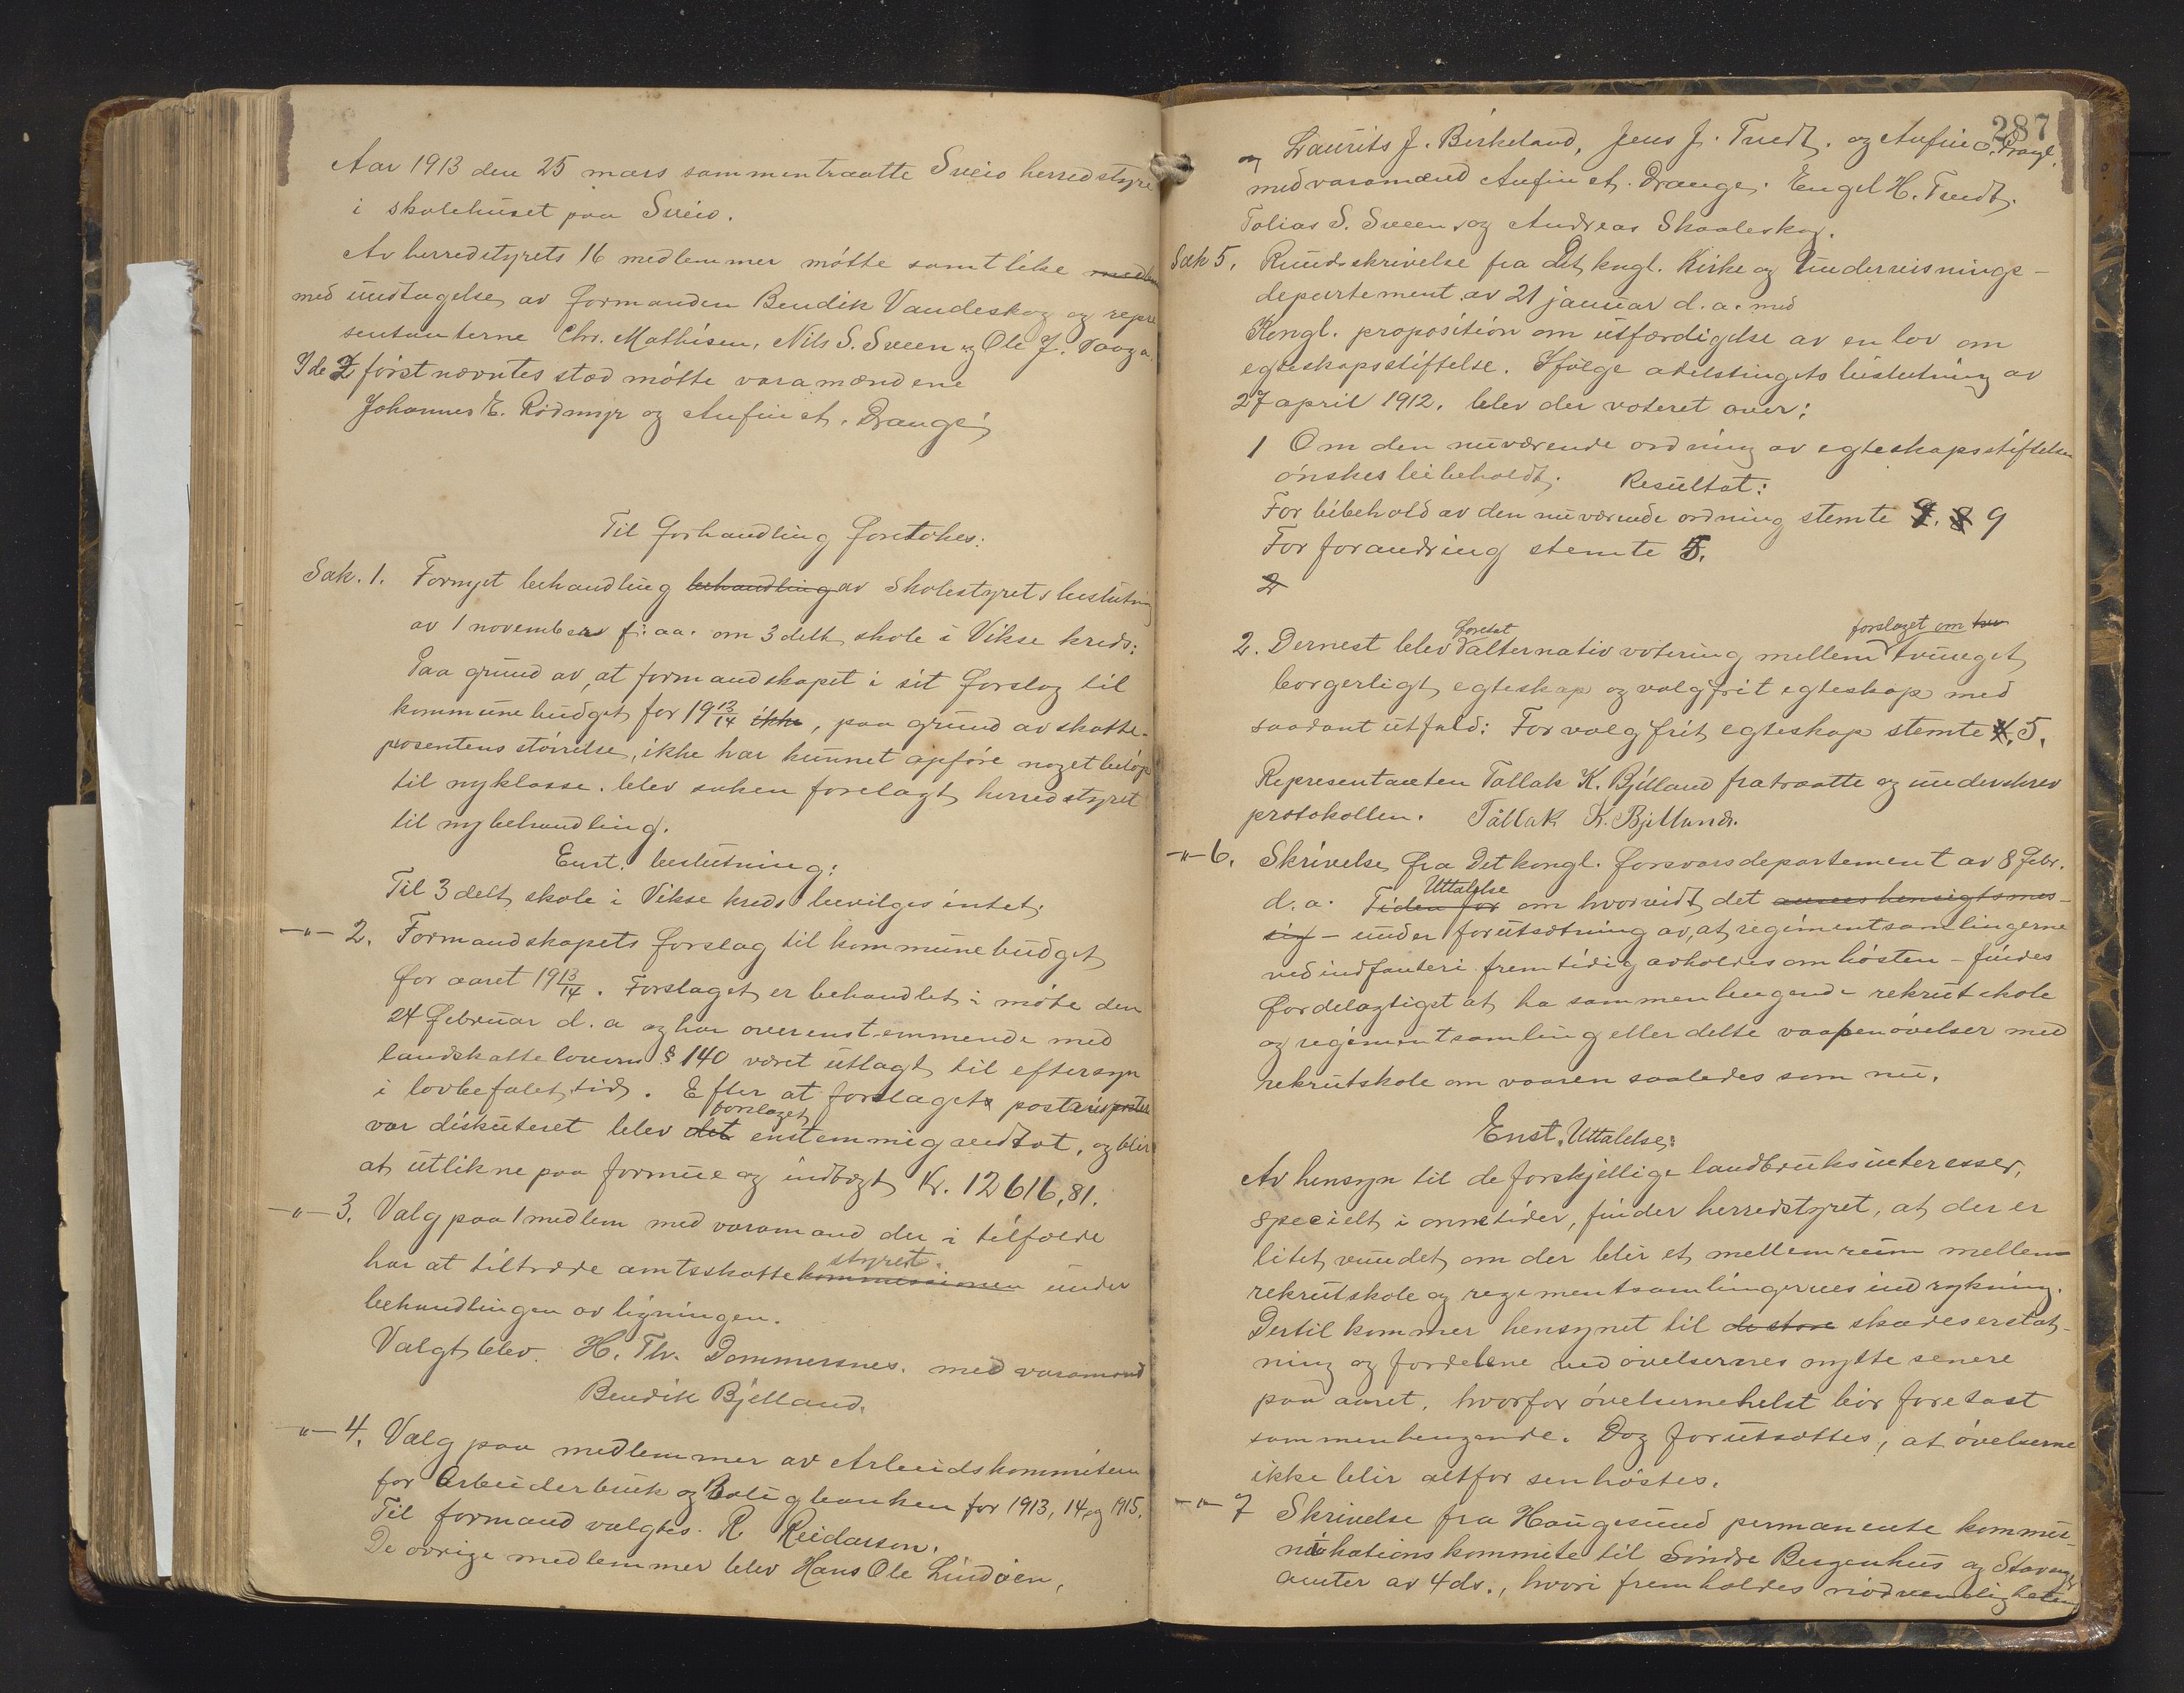 Aar 1913 den 25 mars sammentraatte Sveio herredstyre
i skolehuset paa Sveio.
Av herredstyrets 16 medlemmer møtte samtlike
med undtagelse av formanden Bendik Vandeskog og repre
sentanterne Chr. Mathisen, Nils S. Sveen og Ole J.
I de 2 først nævntes stad møtte varamændene
Johannes E. Rødmyr og Anfin A. Drange
Til forhandling foretokes:
Sak. 1. Fornyet behandling behandling av skolestyrets beslutning
av 1 november f. aa. om 3 delt skole i Vikse kreds:
Paa grund av, at formandskapet i sit forslag til
kommunebudget for 1913/14 ikke, paa grund av skatte-
prosentens størrelse, ikke har kunnet opføre noget beløp
til nyklasse. blev saken forelagt herredstyret
til ny behandling.
Enst. beslutning:
Til 3 delt skole i Vikse kreds bevilges intet.
-"- 2. Formandskapets forslag til kommunebudget
for aaret 1913/14. Forslaget er behandlet i møte den
24 februar d. a og har overenstemmende med
landskattelovens § 140 været utlagt til eftersyn
i lovbefalet tid. Efter at forslagets postvis
forslaget
var diskuteret blev det enstemmig vedtat, og blir
at utlikne paa formue og indtægt Kr. 12616,81.
-"- 3. Valg paa 1 medlem med varamand der i tilfælde
styret.
har at tiltræde amtsskattekommissionen under
behandlingen av ligningen.
Valgt blev. H. Th. Dommersnes. med varamand
Bendik Bjelland.
-"- 4. Valg paa medlemmer av Arbeidskommiteen
for Arbeiderbruk og Boligbanken for 1913, 14 og 1915.
Til formand valgtes. R. Reidarson.
De øvrige medlemmer blev Hans Ole Lindøen,
287
og Laurits J. Birkeland, Jens J. Tvedt. og Anfin O. Drange.
med varamænd Anfin A. Drange. Engel H. Tvedt.
Tobias S. Sveen og Andreas Skaaleskog.
Sak 5. Rundskrivelse fra Det kngl. Kirke og Undervisnings-
departement av 21 januar d. a. med
Kongl. proposition om utfærdigelse av en lov om
egteskapsstiftelse. Ifølge odelstingets beslutning av
27 april 1912. blev der voteret over:
1 Om den nuværende ordning av egteskapsstiftelsen
ønskes bibeholdt. Resultat:
For bibehold av den nuværende ordning stemte 9. 8 9
For forandring stemte 5.
2
foretat forslaget om
2. Dernest blev alternativ votering mellem tvunget
borgerligt egteskap og valgfrit egteskap med
saadant utfald: For valgfrit egteskap stemte 4. 5.
Representanten Tallak K. Bjelland fratraatte og underskrev
protokollen. Tallak K. Bjelland.
-"- 6. Skrivelse fra Det kongl. forsvarsdepartement av 8 febr.
Uttalelse
d. a. Tiden for om hvorvidt det ansees hensigtsmes-
sig - under forutsætning av, at regimentsamlingerne
ved indfanteri fremtidig avholdes om høsten - findes
fordelagtigst at ha sammenhengende rekrutskole
og regimentsamling eller delte vaapenøvelser med
rekrutskole om vaaren saaledes som nu.
Enst. Uttalelse:
Av hensyn til de forskjellige landbruksinteresser,
specielt i onnetider, finder herredstyret, at der er
litet vundet om der blir et mellemrum mellem
rekrutskole og regimentsamlingernes indrykning.
Dertil kommer hensynet til de store skadeserstat-
ning og fordelene ved øvelsernes nytte senere
paa aaret. hvorfor øvelserne helst bør foretaat
sammenhengende. Dog forutsættes, at øvelserne
ikke blir altfor senhøstes.
-"- 7 Skrivelse fra Haugesund permanente kommu-
nikationskommite til Søndre Bergenhus og Stavanger
amter av 4 ds., hvori fremholdes nødvendigheten